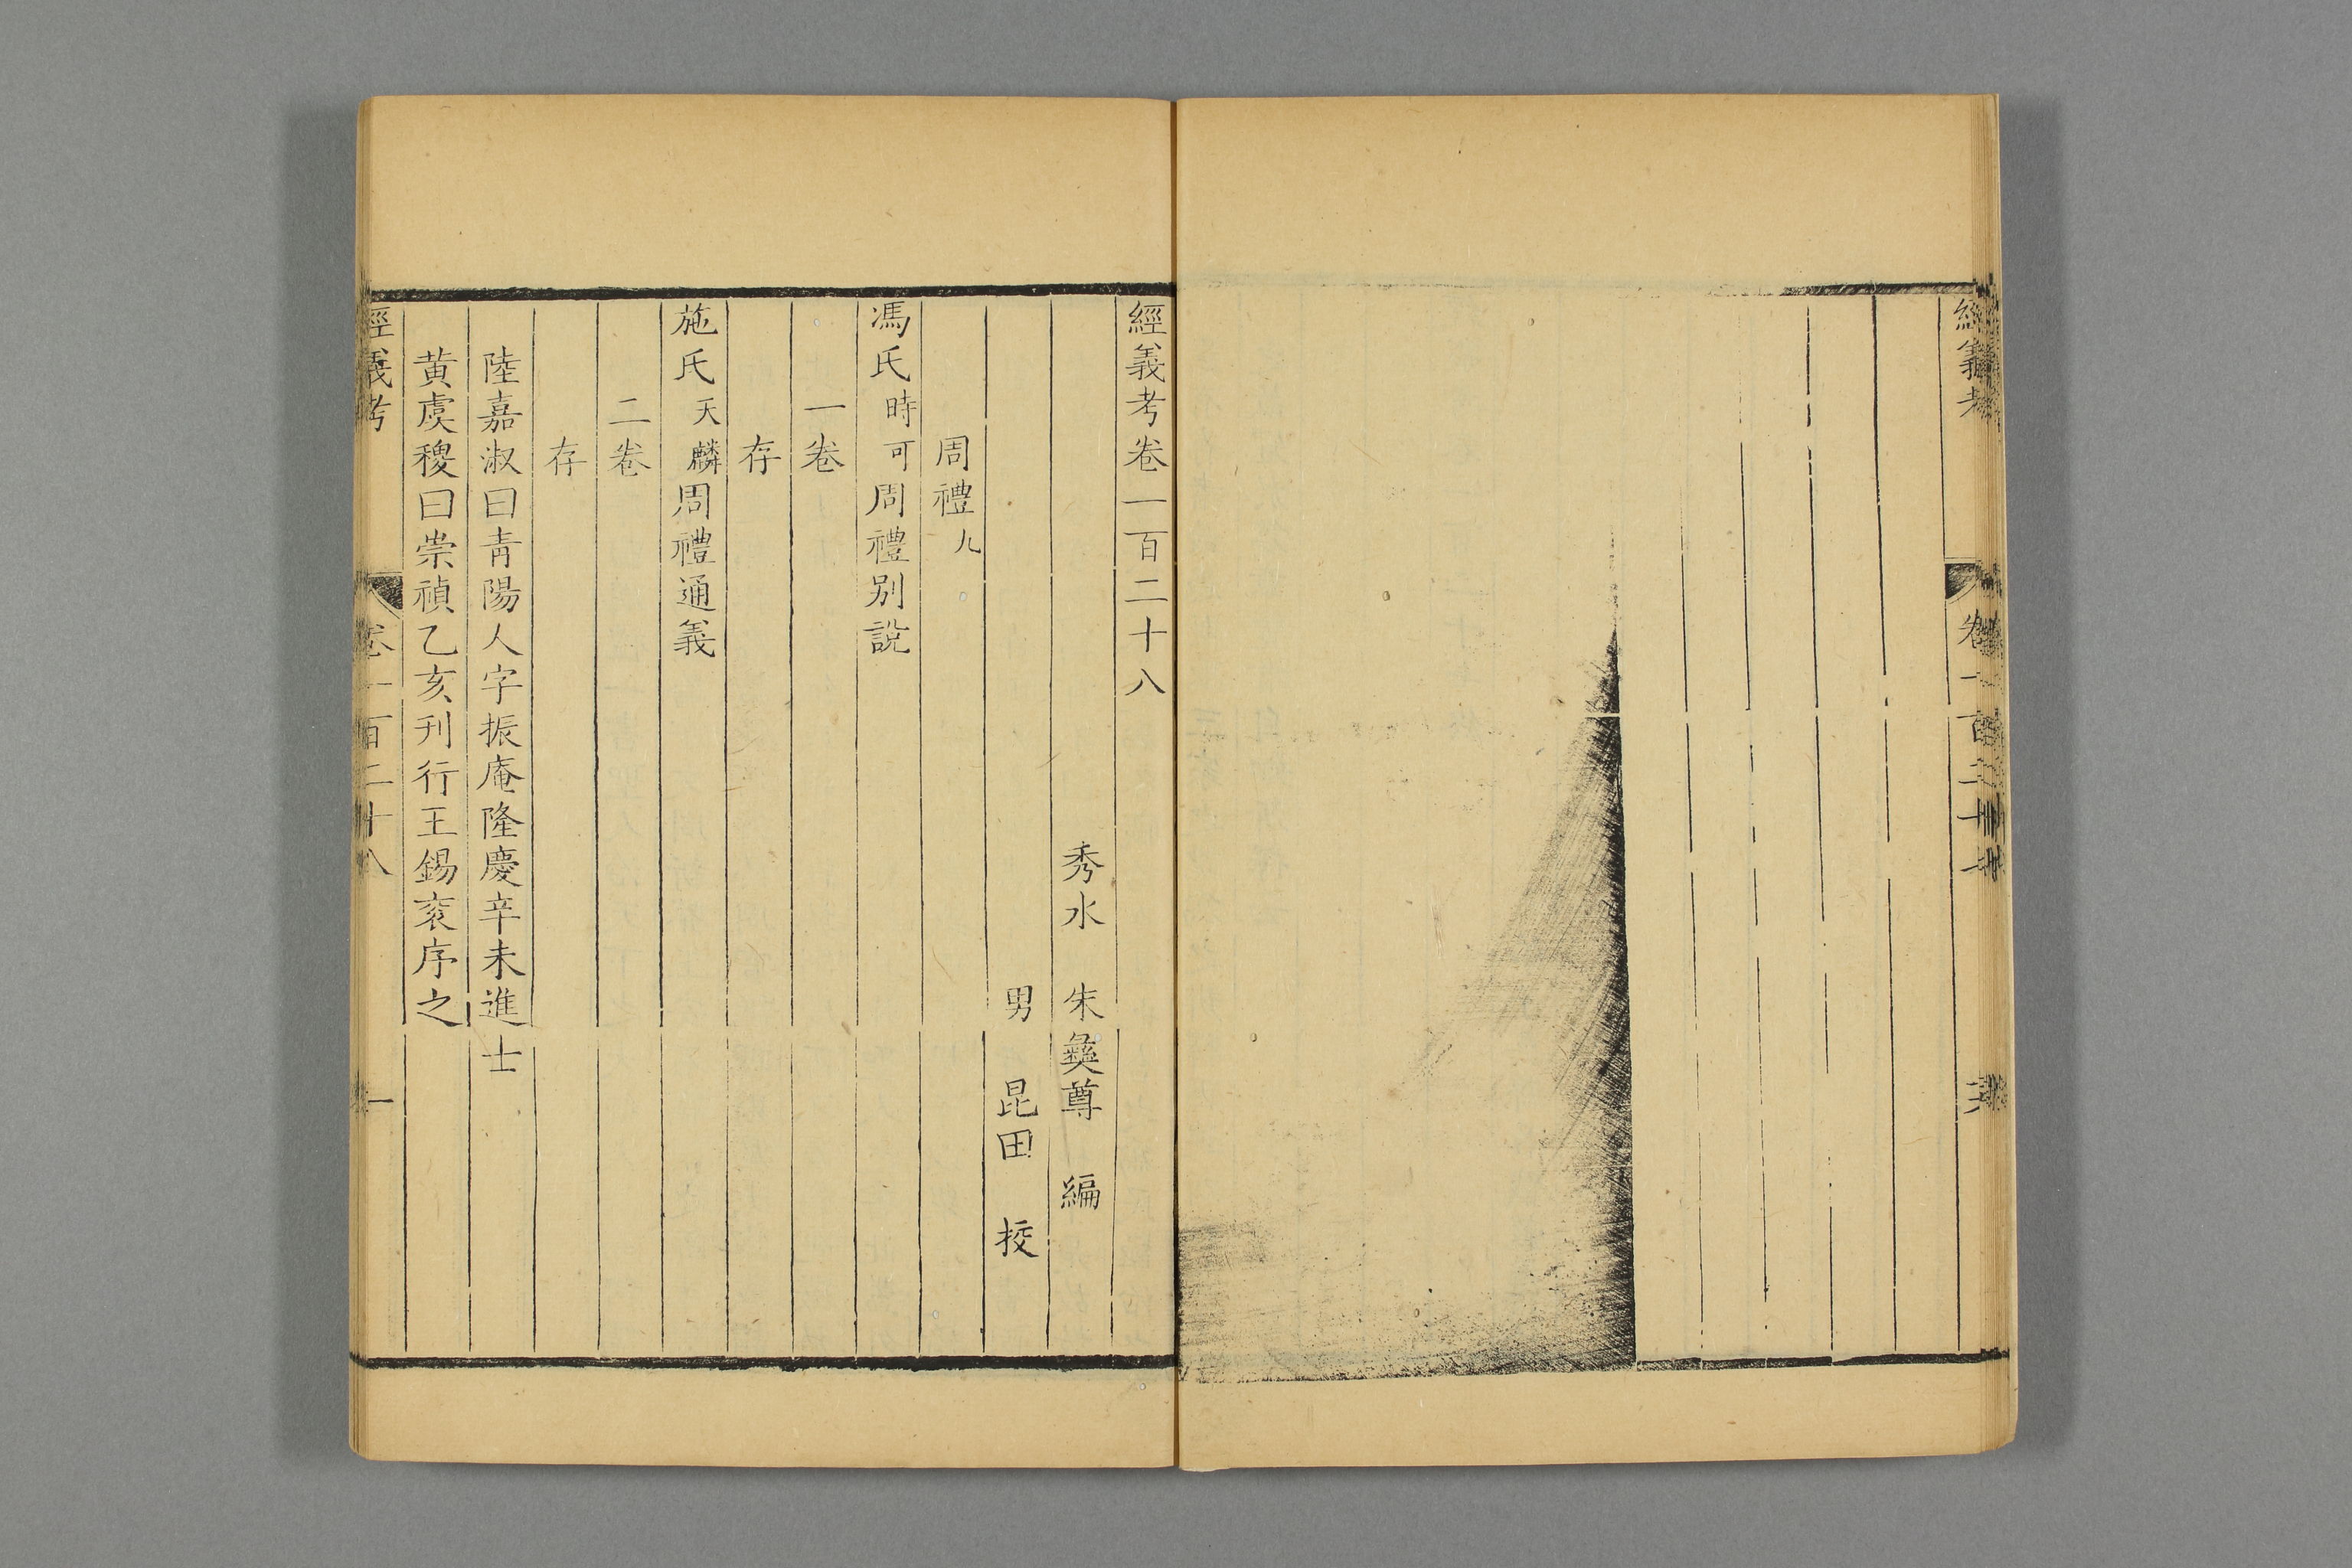 經義考
經義考卷一百二十八
秀水 朱彝尊 編
男 昆田 挍
周禮九
馮氏時可周禮別說
一卷
存
施氏天麟周禮通義
二卷
存
陸嘉淑曰青陽人字振庵隆慶辛未進士
黄虞稷曰崇禎乙亥刊行王錫袞序之
經義考 卷一百二十八 一